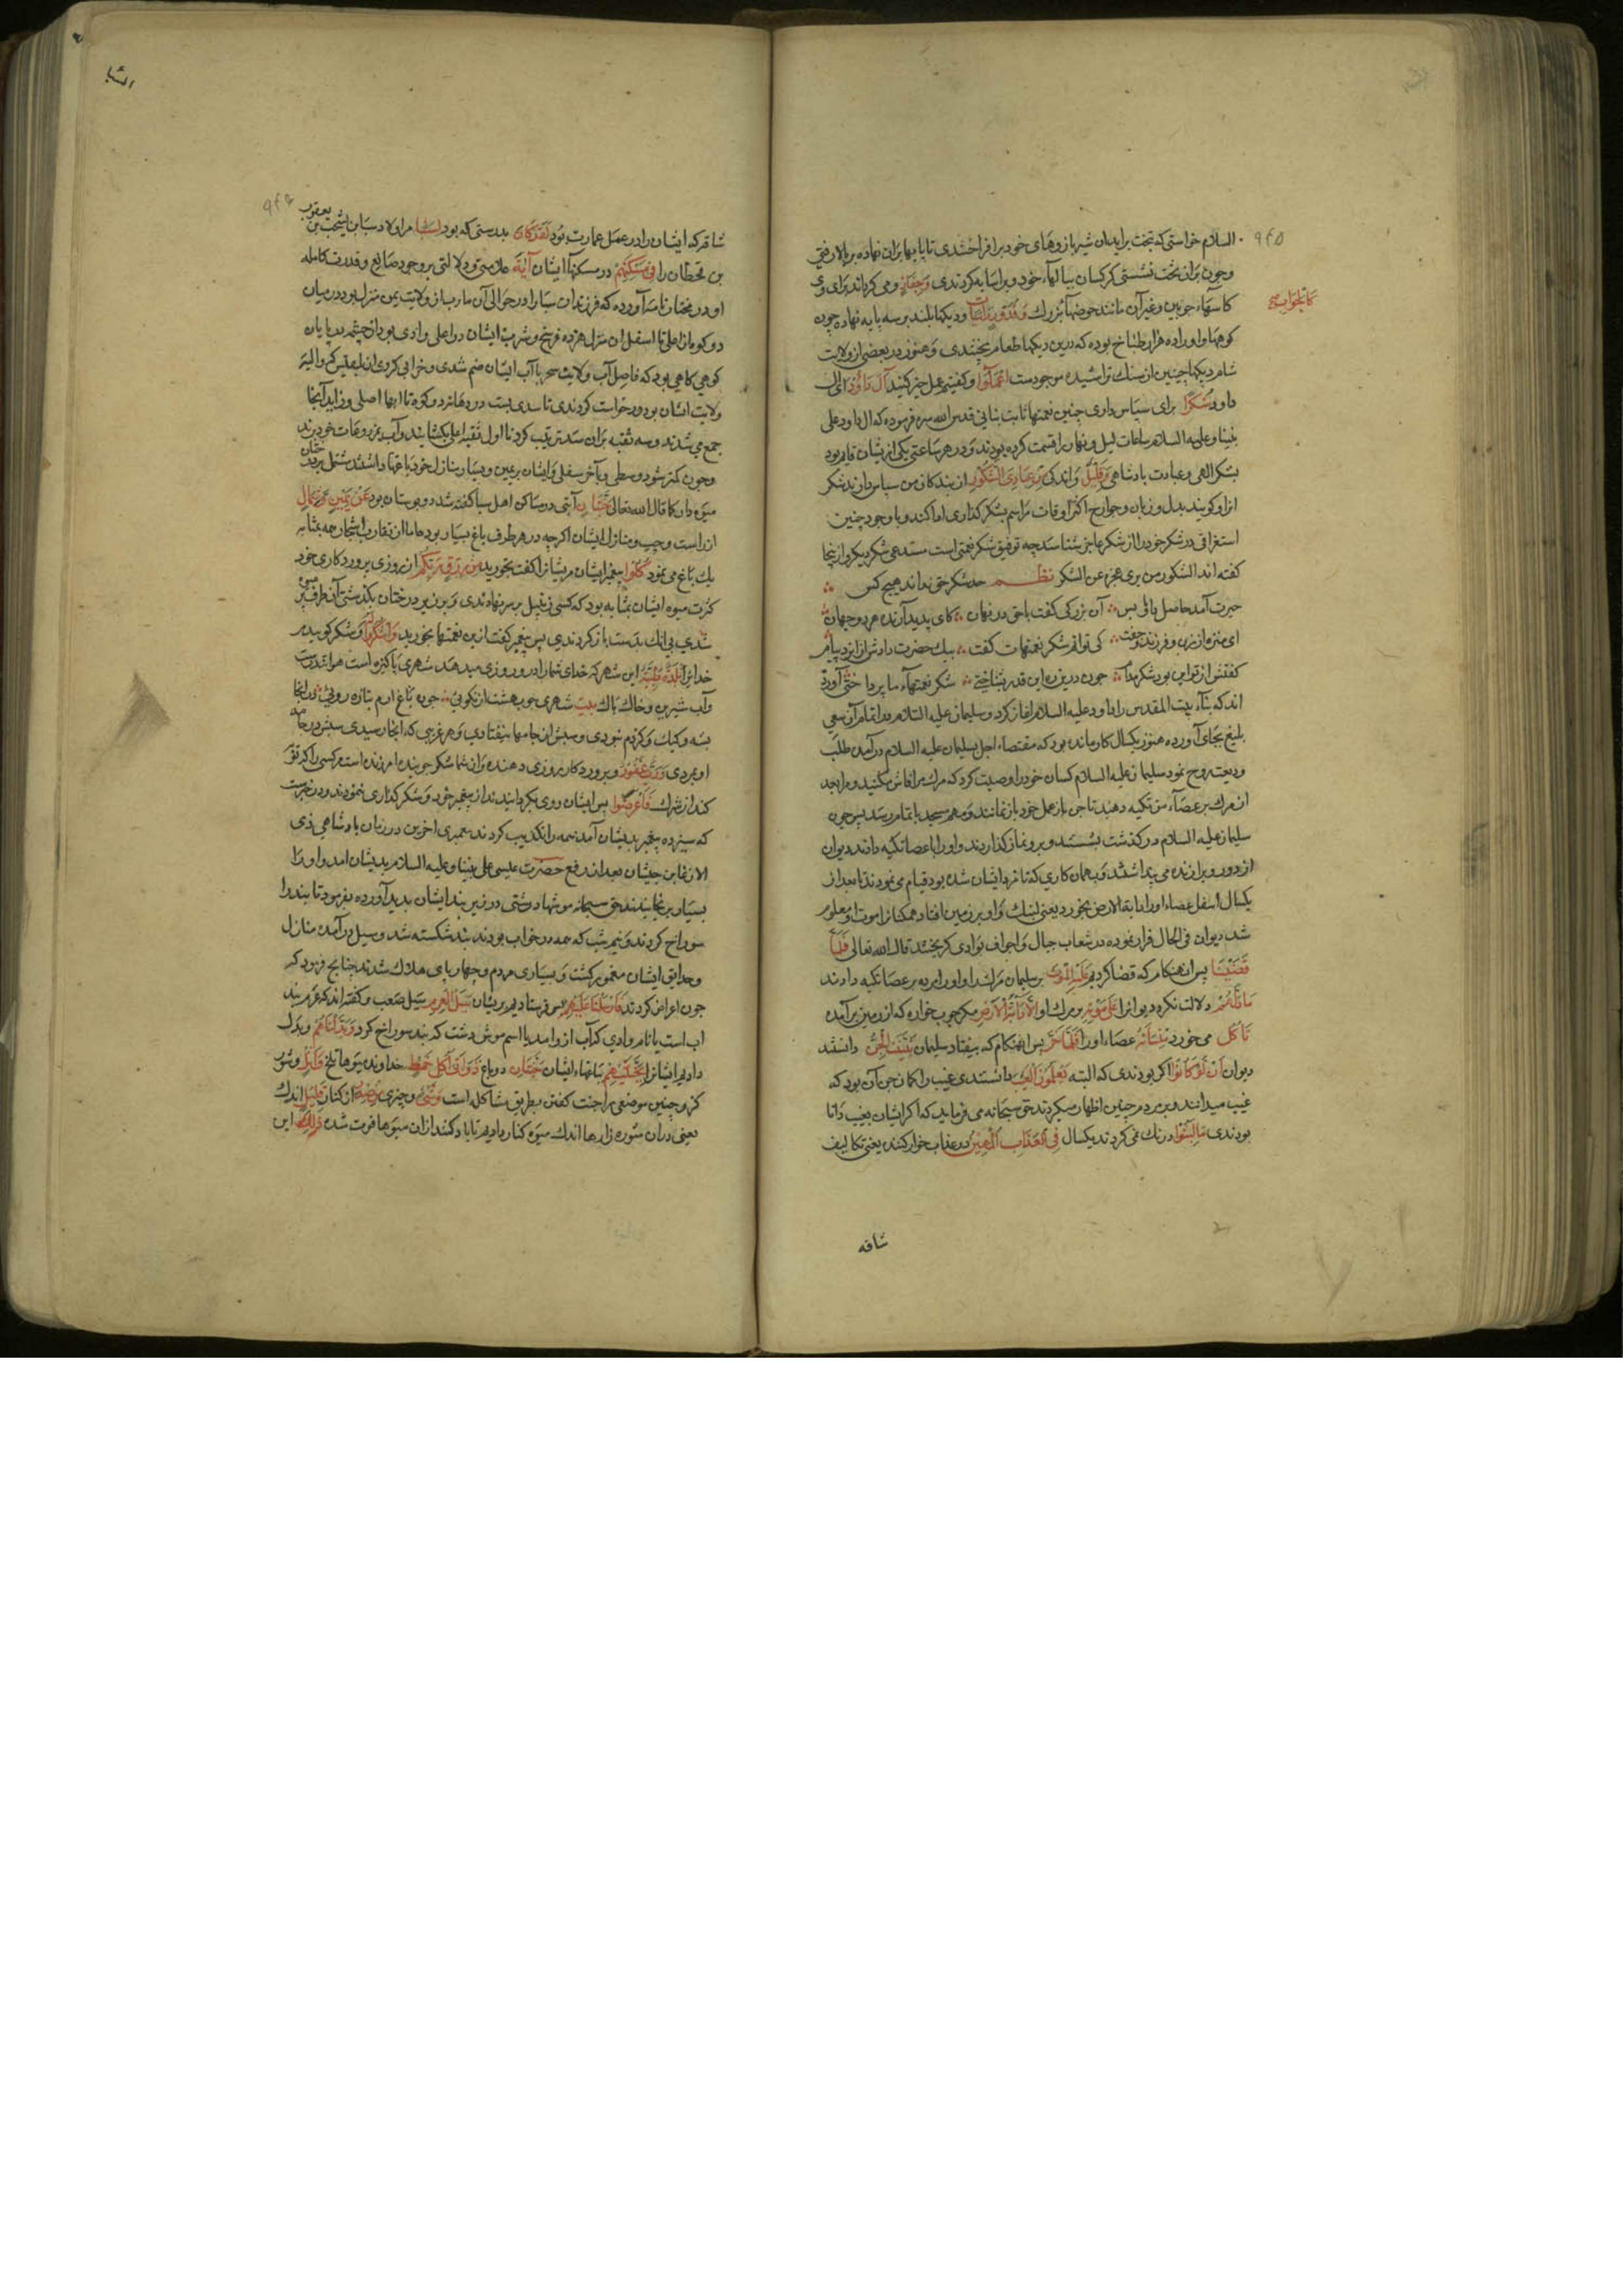 ٩٤٥
السلام خواستی که بتخت براید ان شیر بازوهای خود برافراختندی تا پا بیها بران نهاده بر بالا رفتی
وچون بران تخت نشستی کرکسان ببالهاء خود ویرا سایه کردندی وَجِفَانٍ ومی کردند برای وی
كَالْجَوَابِ
کاسهاء چوبین وغیر آن مانند حوضهاء بزرك وَقُدُورٍ رَاسِيَاتٍ ودیکها بلند بر سه پایه نهاده چون
کوهها واورا ده هزار طباخ بوده که درین دیکها طعام پختندی وهنوز در بعضی از ولایت
شام دیکها چنین از سنك تراشیده موجودست اعْمَلُوا وکفتیم عمل خیر کنید آلَ دَاوُدَ ای ال
داود شُكْرًا برای سپاس داری چنین نعمتها ثابت بنانی قدس الله سره فرموده که ال داود علی
نبینا وعلیه السلام ساعات لیل ونهار را قسمت کرده بودند ودر هر ساعتی یکی از ایشان قایم بود
بشکر الهی وعبادت پادشاهی وَقَلِيلٌ واندکی مِنْ عِبَادِيَ الشَّكُورُ از بندکان من سپاس دارند شکر
انرا کویند بدل وزبان وجوارح اکثر اوقات مراسم بشکر کذاری ادا کند وبا وجود چنین
استغراقی در شکر خود را از شکر عاجز شناسد چه توفیق شکر نعمتی است مستدعی شکر دیکر واز ینجا
کفته اند الشکور من یری عجزه عن الشکر نظـــم حد شکر حق نداند هیچ کس
حیرت آمد حاصل دانا وبس آن بزرکی کفت با حق در نهان کای پدید آرنده هر دو جهان
ای منزه از زن وفرزند وجفت کی توانم شکر نعمتهات کفت پیك حضرت دادش از ایزد پیام
کفتش از تو این بود شکر مدام چون درین ره این قدر بشناختی شکر نعمتهاء ما پرداختی آورده
اند که بناء بیت المقدس را داود علیه السلام آغاز کرد وسلیمان علیه السلام در اتمام آن سعی
بلیغ بجای آورده هنوز یکسال کار مانده بود که مقتضاء اجل بسلیمان علیه السلام درآمده طلب
ودیعت روح نمود سلیمان علیه السلام کسان خود را وصیت کرد که مرك مرا فاش مکنید ومرا بعد
از مرك بر عصاء من تکیه دهید تا جن باز عمل خود باز نمانند ومهم مسجد باتمام رسد پس چون
سلیمان علیه السلام درکذشت بشستند وبرو نماز کذاردند واورا با عصا تکیه دادند دیوان
از دور ویرا زنده می پنداشتند وبهمان کاری که نامزد ایشان شده بود قیام می نمودند تا بعد از
یکسال اسفل عصاء اورا دابة الارض بخورد یعنی لنبك واو بر زمین افتاد همکنانرا موت او معلوم
شد دیوان فی الحال فرار نموده در شعاب جبال واجواف بوادی کریختند قال الله تعالی فَلَمَّا
قَضَيْنَا پس ان هنکام که قضا کردیم عَلَيْهِ الْمَوْتَ بر سلیمان مرك را واورا مرده بر عصا تکیه دادند
مَا دَلَّهُمْ دلالت نکرد دیوانرا عَلَى مَوْتِهِ بر مرك او إِلَّا دَابَّةُ الْأَرْضِ مکر چوب خواره که از زمین برآمده
تَأْكُلُ می خورد مِنْسَأَتَهُ عصاء اورا فَلَمَّا خَرَّ پس انهنکام که بیفتاد سلیمان تَبَيَّنَتِ الْجِنُّ دانستند
دیوان أَنْ لَوْ كَانُوا اکر بودندی که البته يَعْلَمُونَ الْغَيْبَ دانستندی غیب را کمان جن آن بود که
غیب میدانند وبر مردم چنین اظهار میکردند حق سبحانه می فرماید که اکر ایشان بغیب دانا
بودندی مَا لَبِثُوا درنك نمی کردند یکسال فِي الْعَذَابِ الْمُهِينِ در عذاب خوار کننده یعنی تکالیف
شاقه
٩٤٦
شاقه که ایشانرا در عمل عمارت بود لَقَدْ كَانَ بدرستی که بود لِسَبَإٍ مر اولاد سبا بن یشجب بن یعرب
بن قحطان را فِي مَسْكَنِهِمْ در مسکنها ایشان آيَةٌ علامتی ودلالتی بر وجود صانع وقدرت کامله
او در مختار نامه آورده که فرزندان سبا را در حوالی آن مارب از ولایت یمن منزل بود در میان
دو کوه از اعلی تا اسفل ان منزل هژده فرسخ وشرب ایشان در اعلی وادی بود از چشمه در پایان
کوهی کاهی بود که فاصل آب ولایت سحر با آب ایشان ضم شدی وخرابی کردی از بلقیس که والیه
ولایت ایشان بود درخواست کردند تا سدی بست در دهانه دو کوه تا ابها اصلی وزاید آنجا
جمع می شدند وسه ثقبه بران سد ترتیب کردند تا اول ثقبه اعلی بکشایند وآب بمزروعات خود برند
وچون کمتر شود وسطی وبآخر سفلی وایشان بر یمین ویسار منازل خود باغها داشتند مشتمل بر درختان
میوه دار کما قال الله تعالی جَنَّتَانِ آیتی در مساکن اهل سبا کفته شد دو بوستان بود عَنْ يَمِينٍ وَشِمَالٍ
از راست وچپ منازل ایشان اکرچه در هر طرف باغ بسیار بود اما از تقارب اشجار همه بمثابه
یك باغ می نمود كُلُوا پیغمبر ایشان مر ایشانرا کفت بخورید مِنْ رِزْقِ رَبِّكُمْ از روزی پروردکاری خود
کثرت میوه ایشان بمثابه بود که کسی زنبیل بر سر نهادندی وبزیر درختان بکذشتی آن ظرف پر میوه
شدی بی انك بدست باز کردندی پس پیغمبر کفت ازین نعمتها بخورید وَاشْكُرُوا لَهُ وشکر کویید مر
خدایرا بَلْدَةٌ طَيِّبَةٌ این شهر که خدای شما را در و روزی میدهد شهری پاکیزه است هوا تندرست
وآب شیرین وخاك پاك بیت شهری چو بهشت از نکویی چون باغ ارم بتازه رویی در انجا
پشه وکیك وکژدم نبودی وسپش از جامها بیفتادی وهر غریبی که انجا رسیدی سپش در جامه
او بمردی وَرَبٌّ غَفُورٌ وپروردکار روزی دهنده وان شما شکر جوینده امرزنده است هر کسی را که توبه
کند از شرك فَأَعْرَضُوا پس ایشان روی بکردانیدند از پیغمبر خود وشکر کذاری ننمودند ودر خبرست
که سیزده پیغمبر بدیشان آمد همه را تکذیب کردند پیغمبری اخرین در زمان پادشاهی ذی
الاذعار بن جیشان بعد از رفع حضرت عیسی علی نبینا وعلیه السلام بدیشان امد واورا
بسیار برنجانیدند حق سبحانه موشها دشتی در زیر بند ایشان پدید آورده بفرمود تا بند را
سوراخ کردند ونیم شب که همه در خواب بودند بند شکسته شد وسیل درآمده منازل
وحدایق ایشان مغمور کشت وبسیاری مردم وچهارپای هلاك شدند چنانچه فرمود که
چون اعراض کردند فَأَرْسَلْنَا عَلَيْهِمْ پس فرستادیم بریشان سَيْلَ الْعَرِمِ سیل صعب وکفته اند که عرم بند
اب است یا نام وادی که آب از و امد یا اسم موش دشت که بند سوراخ کرد وَبَدَّلْنَاهُمْ وبدل
دادیم ایشانرا بِجَنَّتَيْهِمْ بباغهاء ایشان جَنَّتَيْنِ دو باغ ذَوَاتَيْ أُكُلٍ خَمْطٍ خداوند میوها تلخ وَأَثْلٍ وشور
کز وچنین موضعی را جنت کفتن بطریق مشاکله است وَشَيْءٍ وچیزی مِنْ سِدْرٍ از کنار قَلِيلٍ اندك
یعنی دران شوره زارها اندك میوه کنار دادیم تا یاد کنند ازان میوها فوت شده ذَلِكَ این